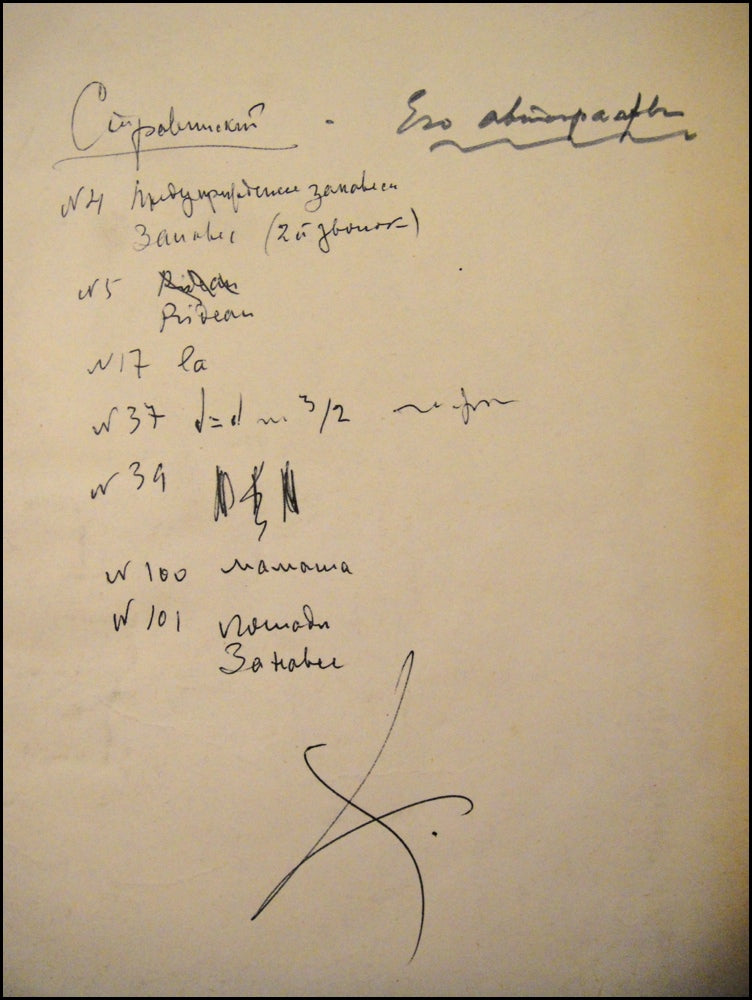 Стравинский - Его автографы
№4 Предупреждение занавеса
Занавес (2й звонок)
№5
Rideau
№17 la
№37 d=d 3/2
№39
№100 мамаша
№101 лошади
Занавес